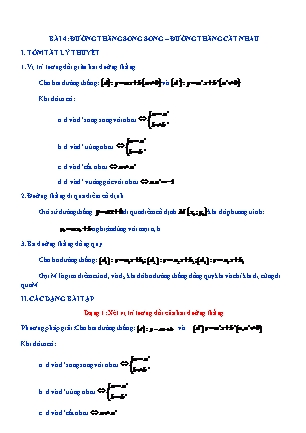 BÀI 4: ĐƯỜNG THẲNG SONG SONG – ĐƯỜNG THẲNG CẮT NHAU
I. TÓM TẮT LÝ THUYẾT
1. Vị trí tương đối giữa hai đường thẳng
Cho hai đường thẳng: (d): y = ax + b (a ≠ 0) và (d'): y = a'x + b' (a' ≠ 0)
Khi đó ta có:
a. d và d' song song với nhau ⇔ { a = a' b ≠ b'
b. d và d' trùng nhau ⇔ { a = a' b = b'
c. d và d' cắt nhau ⇔ a ≠ a'
d. d và d' vuông góc với nhau ⇔ a.a' = -1
2. Đường thẳng đi qua điểm cố định
Giả sử đường thẳng y = ax + b đi qua điểm cố định M(x₀; y₀) khi đó phương trình:
y₀ = ax₀ + b nghiệm đúng với mọi a, b
3. Ba đường thẳng đồng quy
Cho ba đường thẳng: (d₁): y = a₁x + b₁; (d₂): y = a₂x + b₂; (d₃): y = a₃x + b₃
Gọi M là giao điểm của d₁ và d₂ khi đó ba đường thẳng đồng quy khi và chỉ khi d₃ cũng đi
qua M
II. CÁC DẠNG BÀI TẬP
Dạng 1: Xét vị trí tương đối của hai đường thẳng
Phương pháp giải: Cho hai đường thẳng: (d): y = ax + b và (d'): y = a'x + b' (a, a' ≠ 0)
Khi đó ta có:
a. d và d' song song với nhau ⇔ { a = a' b ≠ b'
b. d và d' trùng nhau ⇔ { a = a' b = b'
c. d và d' cắt nhau ⇔ a ≠ a'